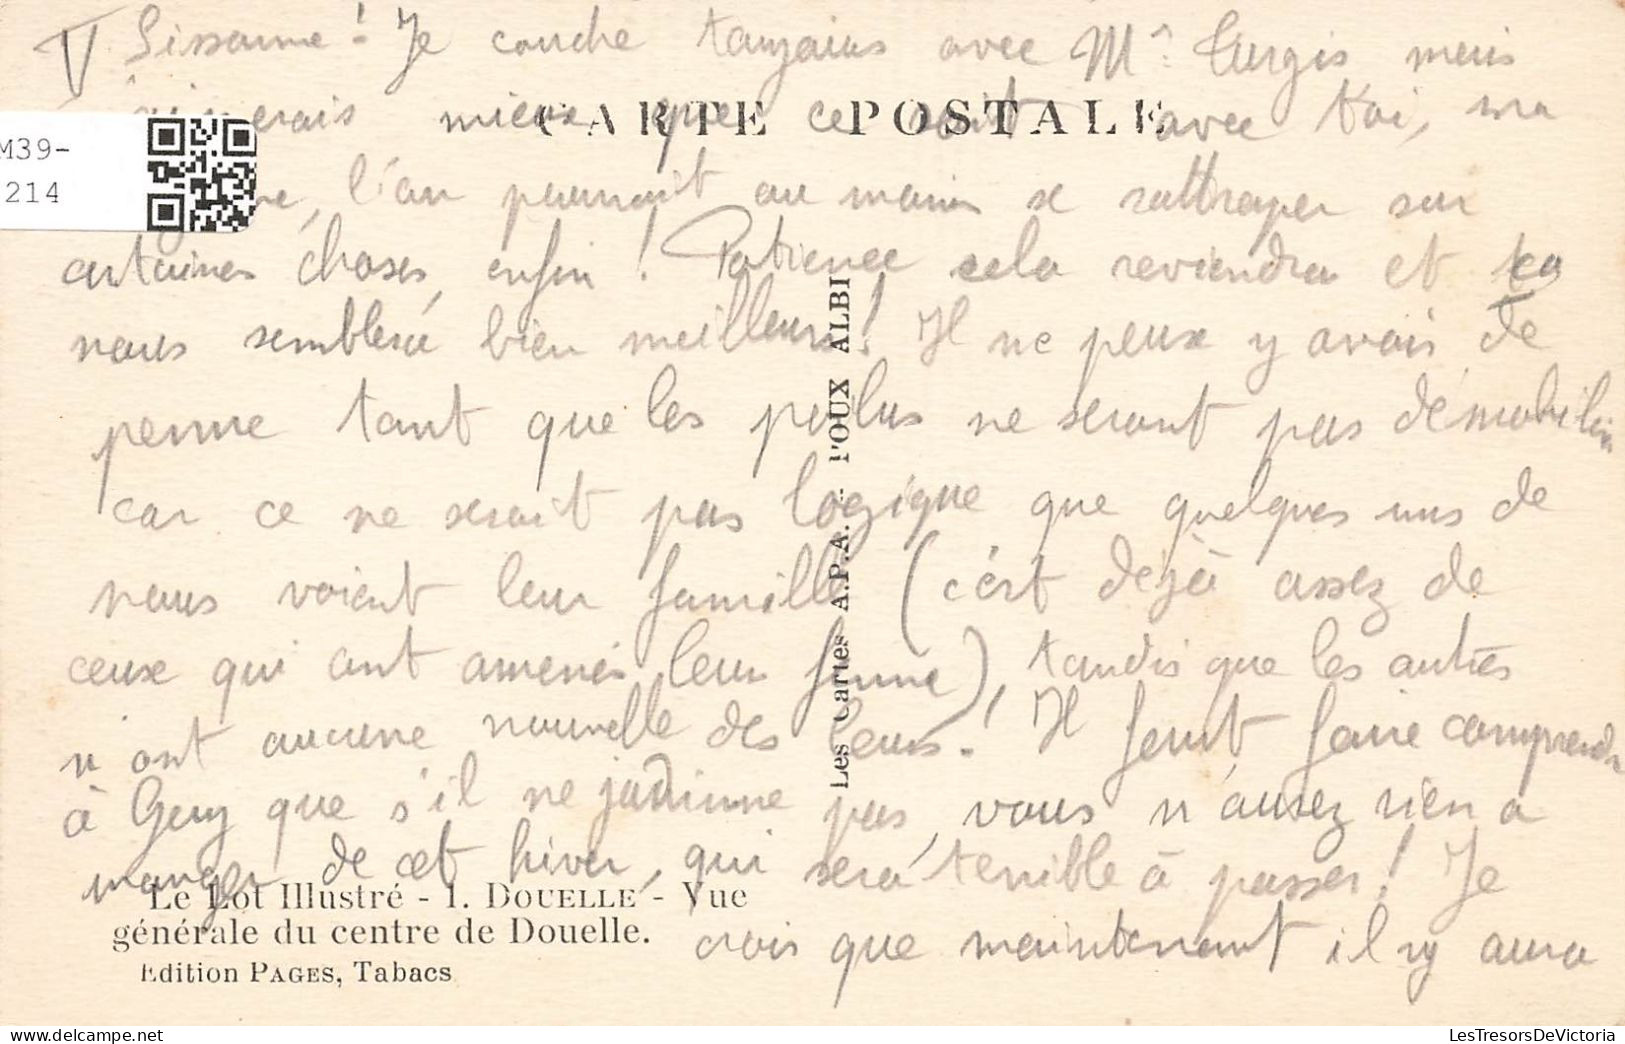 V Sissonne! Je couche toujours avec Mr Turgis mais
CARTE POSTALE
mieux que ce soit avec toi, ma
M39-
214
l'on pourrait au moins se rattraper sur
certaines choses, enfin! Patience cela reviendra et ça
nous semblera bien meilleurs! Il ne peux y avoir de
perme tant que les poilus ne seront pas démobilisés
car ce ne serait pas logique que quelques uns de
nous voient leur famille (c'est déjà assez de
ceux qui ont amenés leur femme), tandis que les autres
n'ont aucune nouvelle des leurs! Il faut faire comprendre
à Guy que s'il ne jardinne pas, vous n'aurez rien a
manger de cet hiver, qui sera terrible à passer! Je
crois que maintenant il ny aura
Les Cartes A.P.A. - POUX ALBI
Le Lot Illustré - 1. DOUELLE - Vue
générale du centre de Douelle.
Edition PAGES, Tabacs
LesTresorsDeVictoria